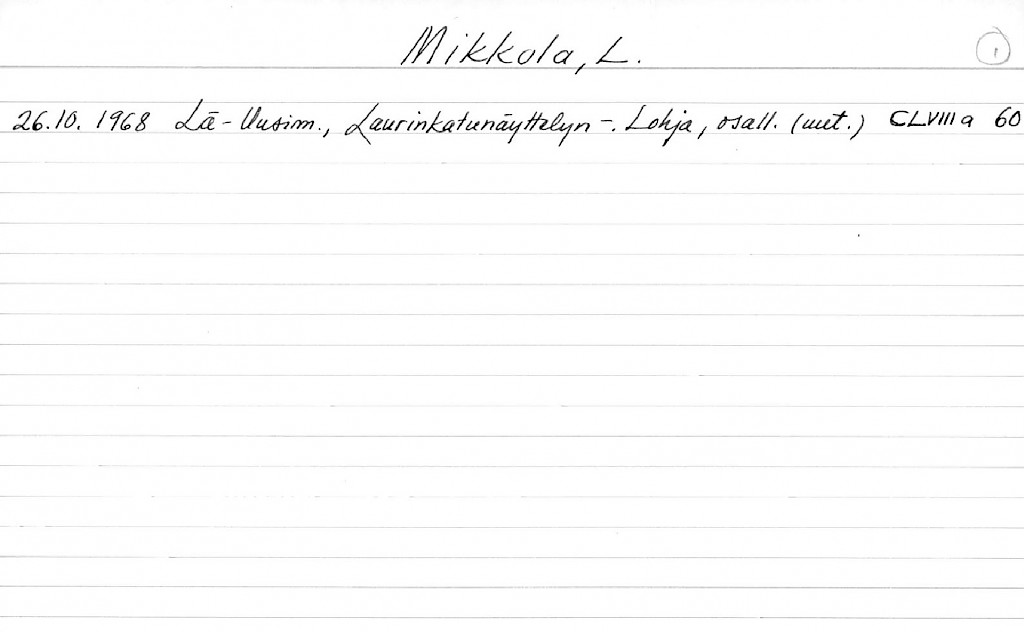 Mikkola, L. 1
26.10. 1968 Lä-Uusim., Laurinkatunäyttelyn -. Lohja, osall. (uut.) CLVIII a 60